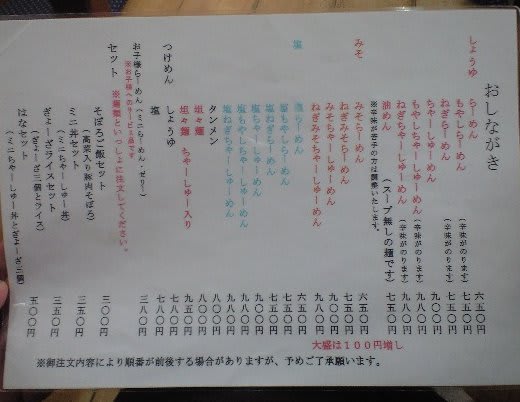 おしながき
しょうゆ らーめん 六五〇円
もやしらーめん (辛味がのります) 七五〇円
ねぎらーめん (辛味がのります) 七五〇円
ちゃーしゅーめん 九〇〇円
もやしちゃーしゅーめん (辛味がのります) 九八〇円
ねぎちゃーしゅーめん (辛味がのります) 九八〇円
油めん (スープ無しの麺です) 七五〇円
※辛味が苦手の方は調整いたします。
みそ みそらーめん 六五〇円
ねぎみそらーめん 七五〇円
みそちゃーしゅーめん 九〇〇円
ねぎみそちゃーしゅーめん 九八〇円
塩 塩らーめん 六五〇円
塩もやしらーめん 七五〇円
塩ねぎらーめん 七五〇円
塩ちゃーしゅーめん 九〇〇円
塩もやしちゃーしゅーめん 九八〇円
塩ねぎちゃーしゅーめん 九八〇円
タンメン 八〇〇円
坦々麺 八〇〇円
坦々麺 ちゃーしゅー入り 九五〇円
つけめん しょうゆ 七八〇円
塩 七八〇円
お子様らーめん(ミニらーめん・ゼリー) 三八〇円
※お子様へのサービス品です
セット ※麺類といっしょに注文してください。
そぼろご飯セット 三〇〇円
(高菜入り豚肉そぼろ)
ミニ丼セット 三五〇円
(ミニちゃーしゅー丼)
ぎょーざライスセット 三五〇円
(ぎょーざ三個とライス)
はなセット 五〇〇円
(ミニちゃーしゅー丼とぎょーざ三個)
大盛は100円増し
※御注文内容により順番が前後する場合がありますが、予めご了承願います。